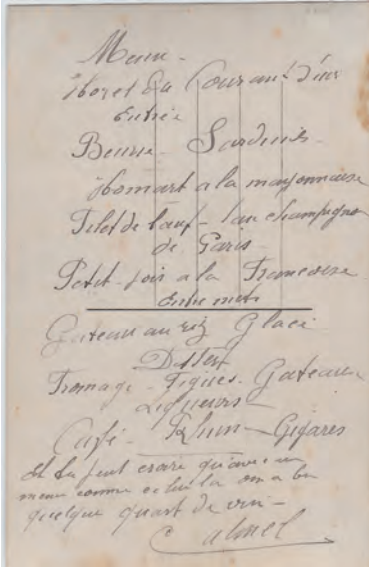 Menu -
Hotel du Courant d'air
Entrée
Beurre - Sardines -
Homart a la mayonnaise
Filet de bœuf - aux champignons
de Paris -
Petit - pois a la Francaise
Entre mets
Gateau au riz Glacé
Déssert
Fromage - Figues - Gateaux
Liqueurs -
Café - Rhum - Cigares
et tu peut croire qu'avec un
menu comme celui la on a bu
quelque quart de vin -
Calmel